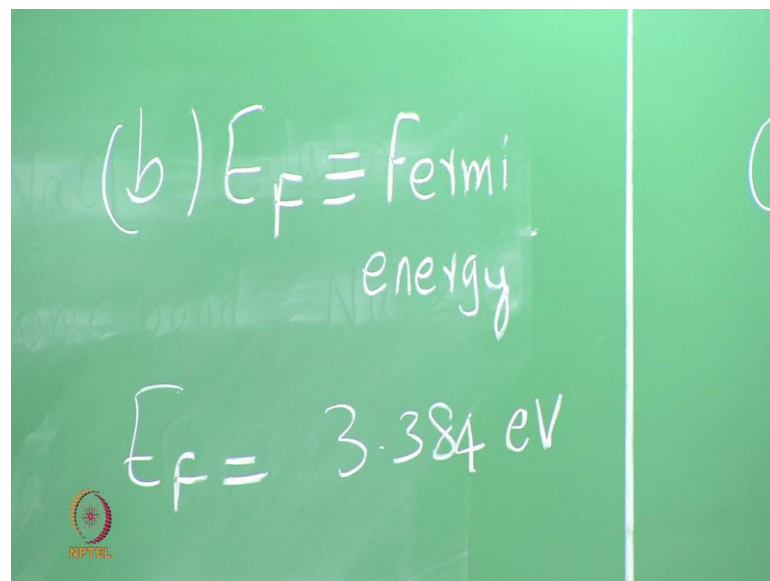 (b) E_F ≡ Fermi
energy
E_F = 3.384 eV
NPTEL